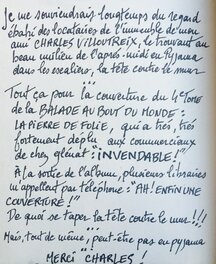 Je me souviendrais longtemps du regard
ébahi des locataires de l'immeuble de mon
ami CHARLES VILLOUTREIX, le trouvant au
beau milieu de l'après-midi en Pyjama
dans les escaliers, la tête contre le mur
Tout ça pour la couverture du 4e TOME
de la BALADE AU BOUT DU MONDE :
LA PIERRE DE FOLIE, qui a très, très
fortement déplu aux commerciaux
de chez glénat : "INVENDABLE !"
A la sortie de l'album, plusieurs libraires
m'appellent par téléphone : "AH ! ENFIN UNE
COUVERTURE !"
De quoi se taper la tête contre le mur !!!
Mais, tout de même, peut-être pas en pyjama
MERCI "CHARLES !